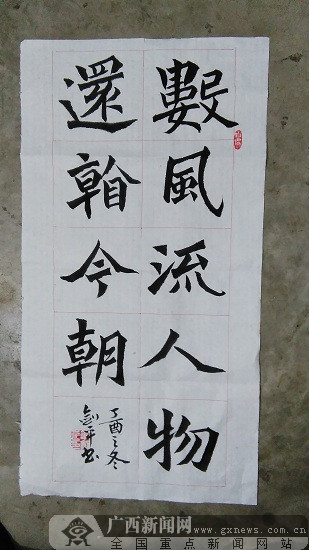 數風流人物
還看今朝
丁酉之冬
劍平书
广西新闻网
www.gxnews.com.cn
全国重点新闻网站